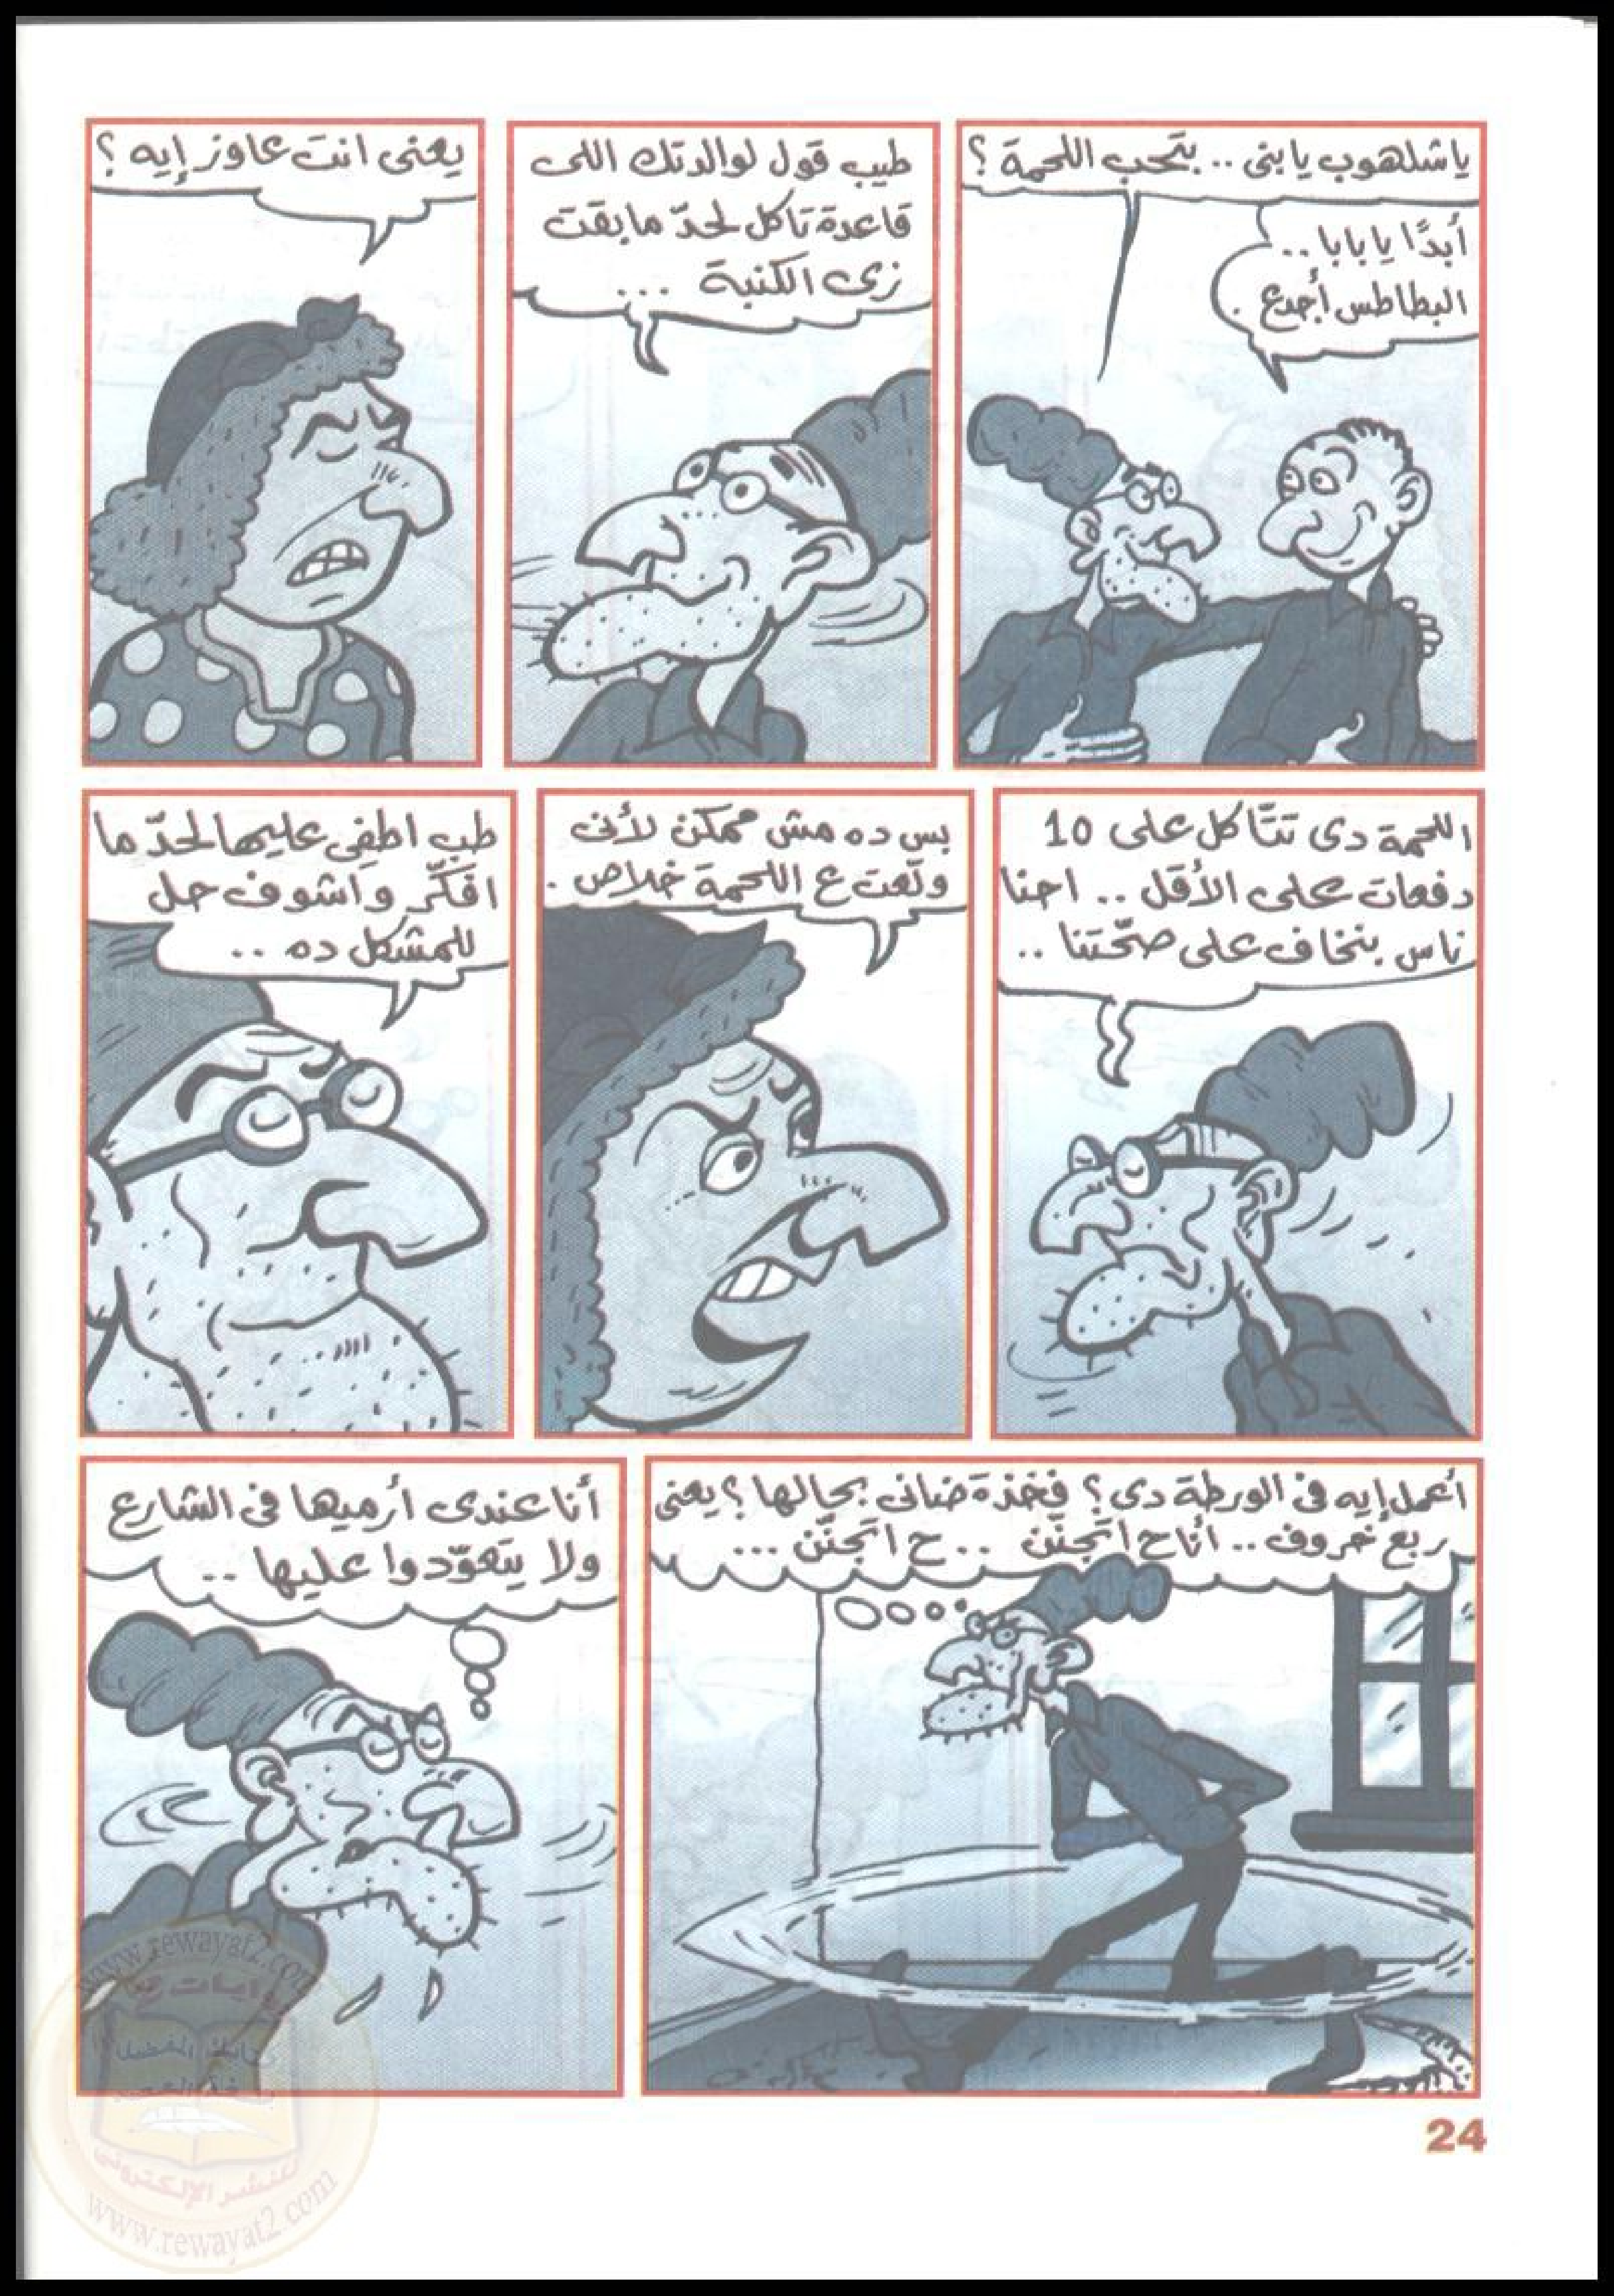 ياشلهوب يابنى .. بتحب اللحمة ؟
أبدًا يا بابا ..
البطاطس أجدع .
طيب قول لوالدتك اللى
قاعدة تاكل لحدّ ما بقت
زى الكنبة ...
يعنى انت عاوز إيه ؟
اللحمة دى تتّاكل على 10
دفعات على الأقل .. احنا
ناس بنخاف على صحّتنا ..
بس ده مش ممكن لأنى
ولّعت ع اللحمة خلاص .
طب اطفى عليها لحدّ ما
افكّر واشوف حل
للمشكل ده ..
أعمل إيه فى الورطة دى ؟ فخذة ضانى بحالها ؟ يعنى
ربع خروف .. أنا ح اتجنّن .. ح اتجنّن ...
أنا عندى أرميها فى الشارع
ولا يتعوّدوا عليها ..
24
www.rewayat2.com
للنشر الإلكترونى
www.rewayat2.com